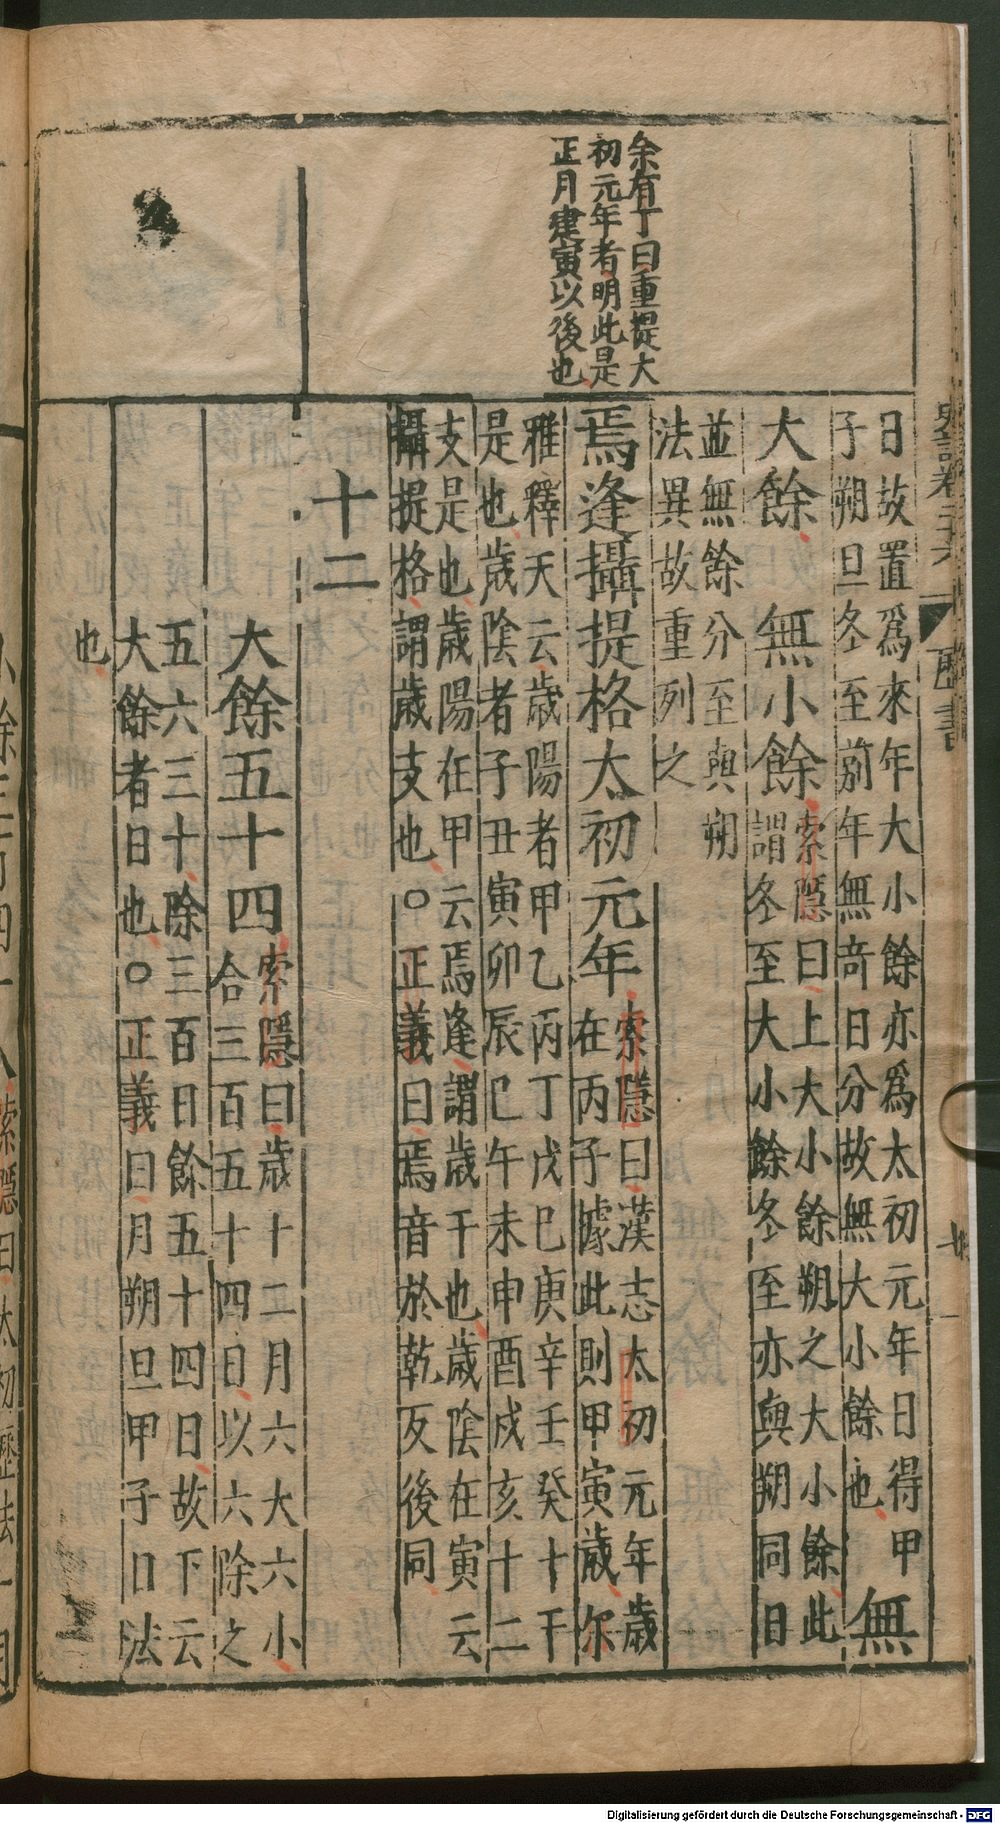 余有丁曰重提大
初元年者明此是
正月建寅以後也
日故置爲來年大小餘亦爲太初元年日得甲
子朔旦冬至前年無奇日分故無大小餘也
無
大餘
無小餘
索隱曰上大小餘朔之大小餘此
謂冬至大小餘冬至亦與朔同日
並無餘分至與朔
法異故重列之
焉逢攝提格太初元年
索隱曰漢志太初元年歲
在丙子據此則甲寅歲尔
雅釋天云歲陽者甲乙丙丁戊巳庚辛壬癸十干
是也歲陰者子丑寅卯辰巳午未申酉戍亥十二
支是也歲陽在甲云焉逢謂歲干也歲陰在寅云
攝提格謂歲支也○正義曰焉音於乾反後同
十二
大餘五十四
索隱曰歲十二月六大六小
合三百五十四日以六除之
五六三十除三百日餘五十四日故下云
大餘者日也○正義曰月朔旦甲子日法
也
史記卷二十六
曆書
七
索隱曰太初歷法一月
Digitalisierung gefördert durch die Deutsche Forschungsgemeinschaft - DFG